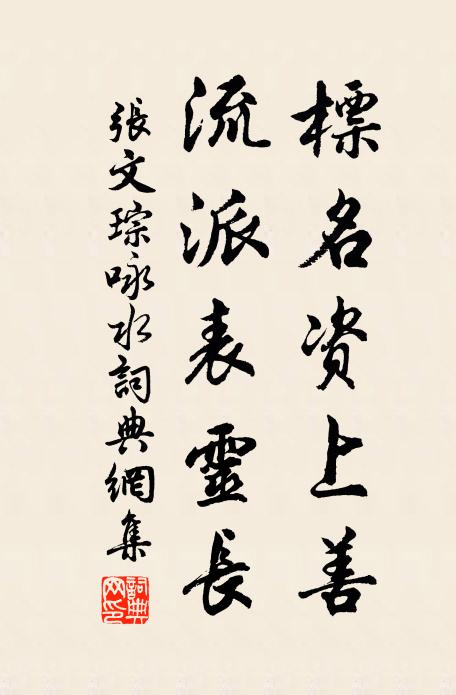 標名資上善
流派表靈長
張文琮咏水詞典網集
詞典
网印